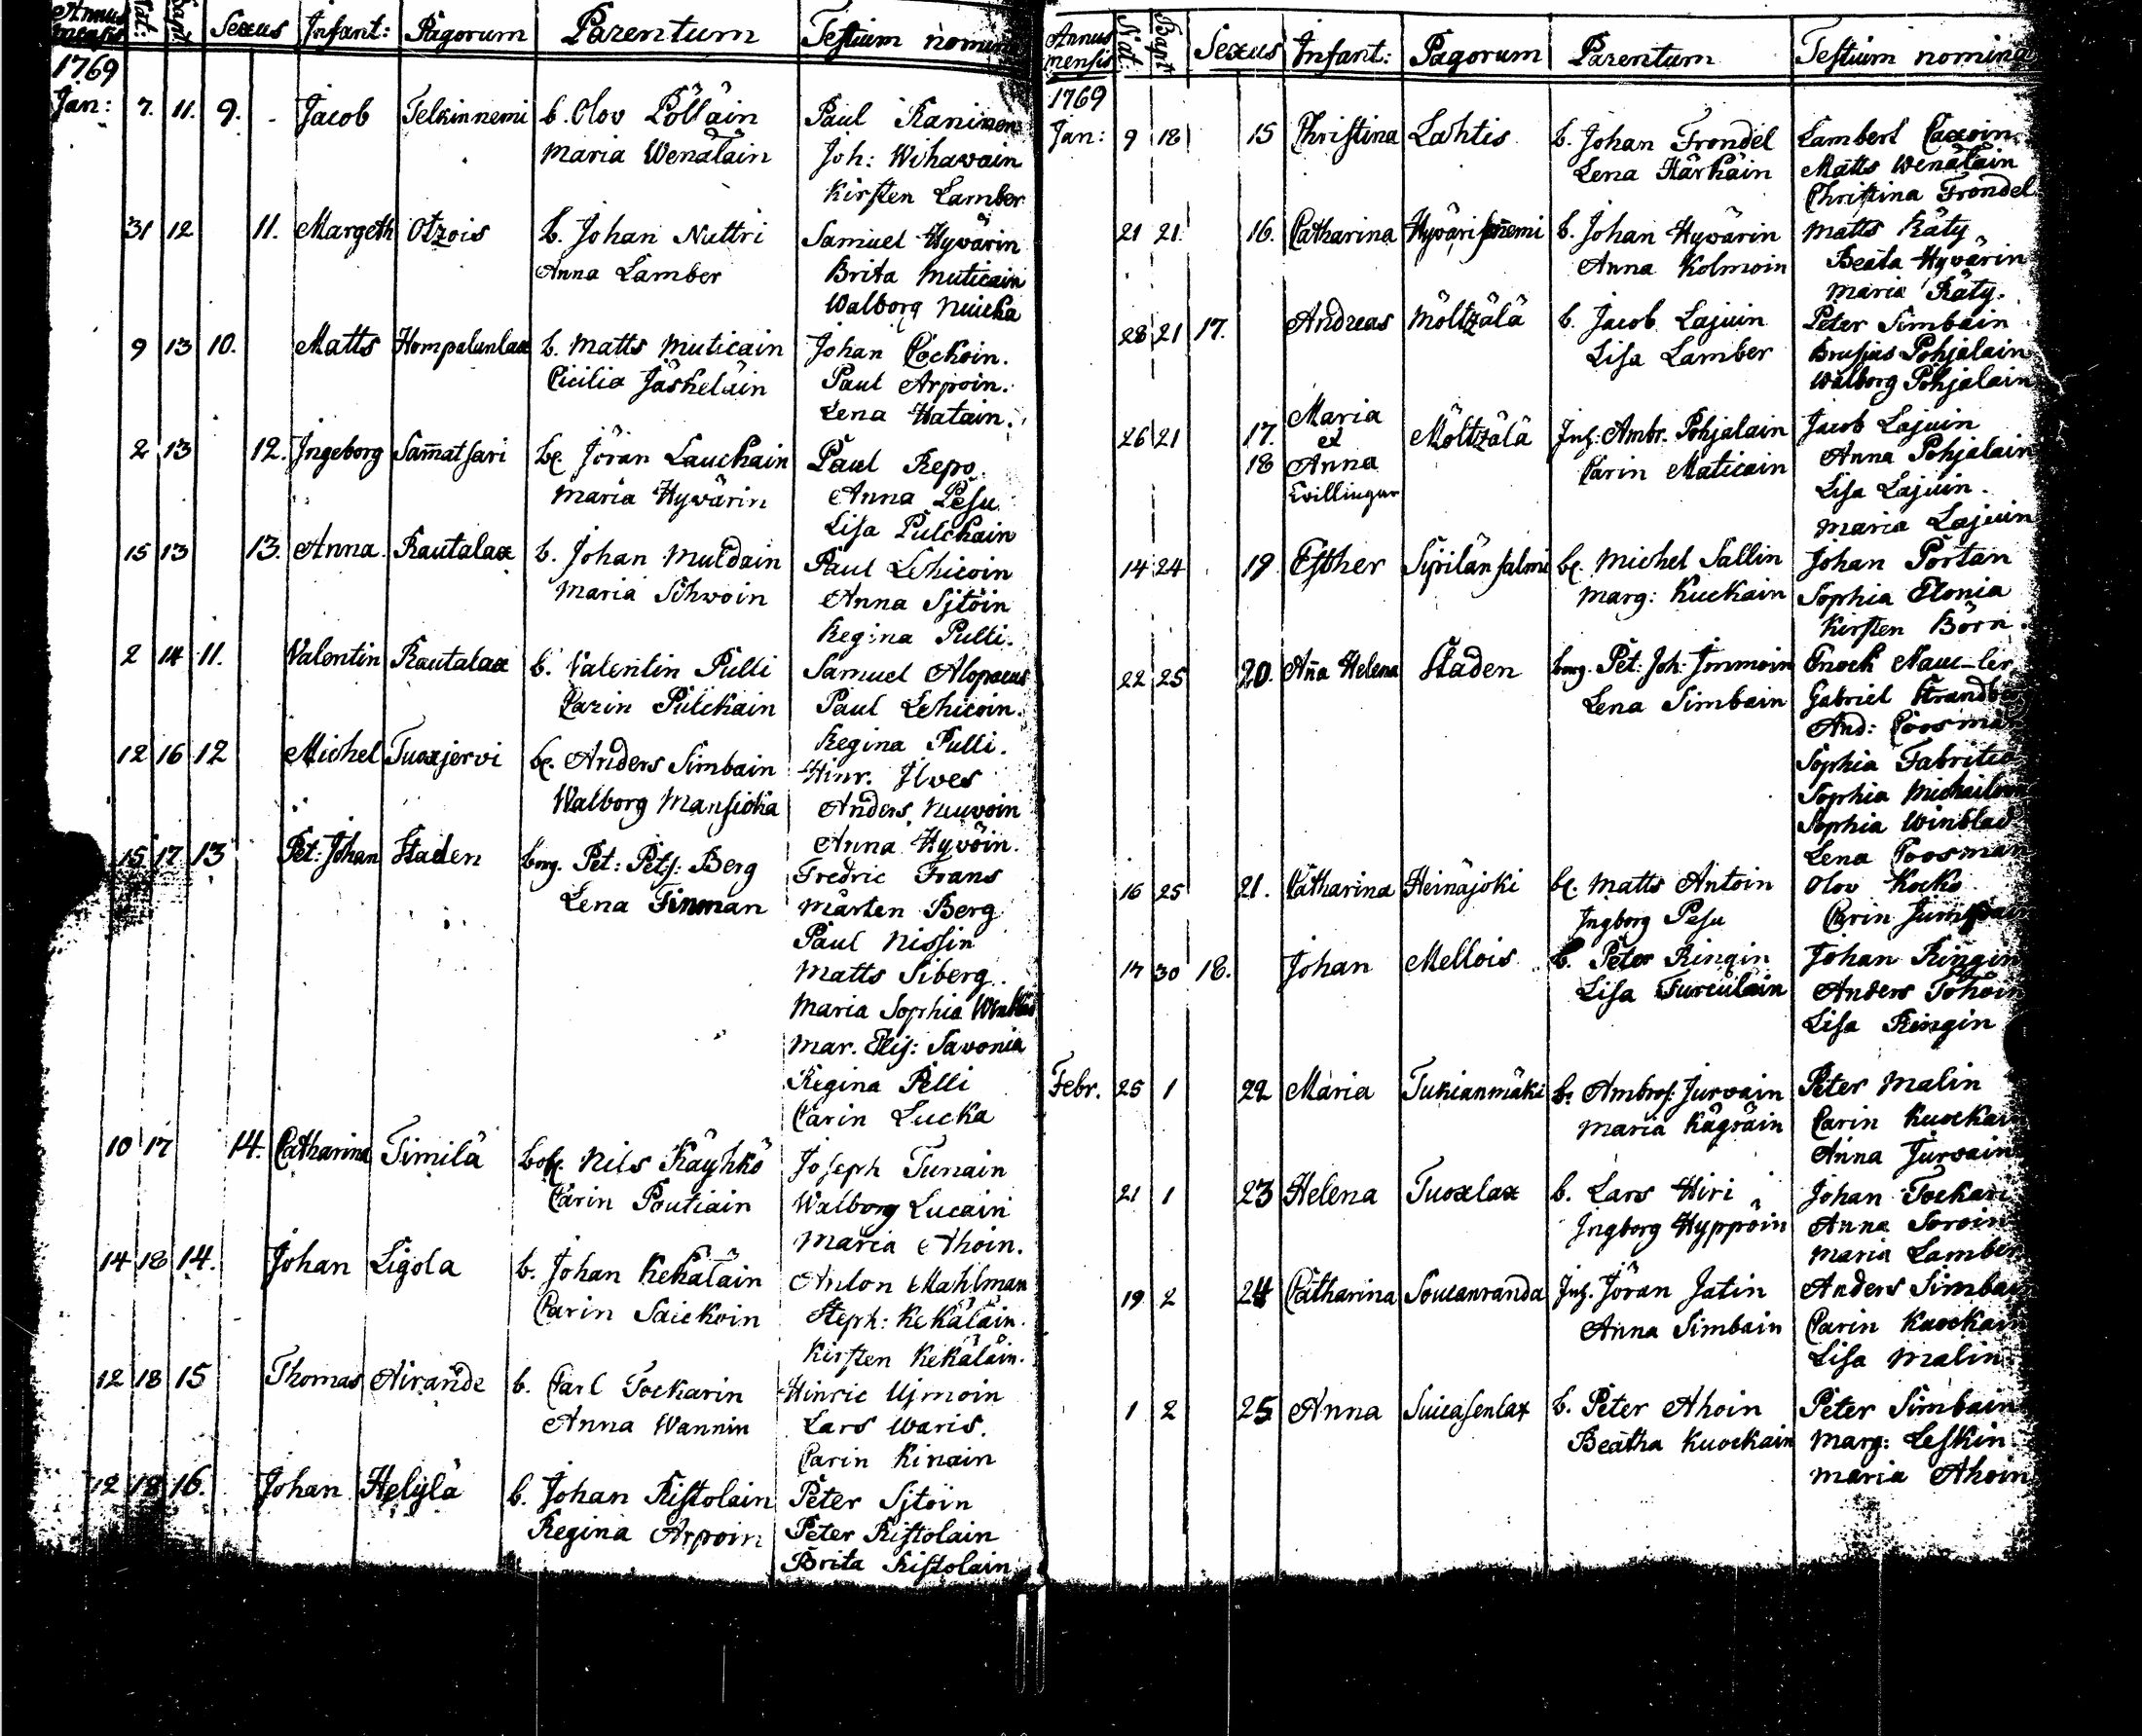 Annus mensis Nat: Bapt Sexus Infant: Pagorum Parentum Testium nomina
1769
Jan: 7. 11. 9. Jacob Telkinnemi b. Olov Pölläin Paul Raninen
Maria Wenäläin Joh: Wihawain
Kirsten Lamber
31 12 11. Margeth Otzois b. Johan Nuttri Samuel Hyvärin
Anna Lamber Brita Muticain
Walborg Nuicka
9 13 10. Matts Hompalanlax b. Matts Muticain Johan Cockoin.
Cicilia Jäskeläin Paul Arpoin.
Lena Hatain.
2 13 12. Ingeborg Sam̄atsari bc. Jöran Lauckain Paul Repo.
Maria Hyvärin Anna Pesu
Lisa Pulckain
15 13 13. Anna Rautalax b. Johan Muldain Paul Lehicoin
Maria Sihwoin Anna Sjtöin
Regina Pulli.
2 14 11. Valentin Rautalax b. Valentin Pulli Samuel Alopaeus
Carin Pulckain Paul Lehicoin.
Regina Pulli.
12 16 12 Michel Tuoxjervi bc. Anders Simbain Hinr. Ilves
Walborg Mansicka Anders Nuwoin
Anna Hyvöin.
15 17 13 Pet: Johan Staden borg. Pet: Pets: Berg Fredric Frans
Lena Finman Mårten Berg
Paul Nissin
Matts Siberg.
Maria Sophia
Mar. Elis: Savonia
Regina Pelli
Carin Lucka
10 17 14. Catharina Timilä Nils Käyhkö Joseph Tunain
Carin Poutiain Walborg Lucain
Maria Ahoin.
14 18 14. Johan Ligola b. Johan Kekäläin Anton Mahlman
Carin Saickoin Steph: Kekäläin.
Kirsten Kekäläin.
12 18 15 Thomas Airande b. Carl Tockarin Hinric Ujmoin
Anna Wannin Lars Waris.
Carin Kinain
12 18 16. Johan Helylä b. Johan Ristolain Peter Sjtöin
Regina Arpoin Peter Ristolain
Brita Ristolain
Annus mensis Nat: Bapt Sexus Infant: Pagorum Parentum Testium nomina
1769
Jan: 9 18 15 Christina Lahtis b. Johan Frondel Lambert
Lena Härkäin Matts Wenäläin
Christina Frondel
21 21. 16. Catharina Hyvärisnemi b. Johan Hyvärin Matts Räty
Anna Kolmoin Beata Hyvärin
Maria Räty.
28 21 17. Andreas Möltzälä b. Jacob Lajuin Peter Simbain
Lisa Lamber Brusius Pohjalain
Walborg Pohjalain
26 21 17. Maria Möltzälä Inh: Ambr. Pohjalain Jacob Lajuin
et Carin Maticain Anna Pohjalain
18 Anna Lisa Lajuin.
tvillingar Maria Lajuin
14 24 19 Esther Sipilänsalmi bc. Michel Sallin Johan Portan
Marg: Kuckain Sophia Elonia
Kirsten Börn.
22 25 20. An̄a Helena Staden borg. Pet: Joh: Immoin Enock
Lena Simbain Gabriel
And: Poosman
Sophia
Sophia
Sophia Winblad
Lena Poosman
16 25 21. Catharina Heinäjoki bc. Matts Antoin Olov Kocko
Ingborg Pesu Carin
17 30 18. Johan Mellois b. Peter Ringin Johan Ringin
Lisa Turculain Anders
Lisa Ringin
Febr. 25 1 22 Maria Tukianmäki b. Ambros: Jurvain Peter Malin
Maria Kägräin Carin Kuockain
Anna Jurvain
21 1 23 Helena Tuoxlax b. Lars Hiri Johan Tockari
Ingborg Hyppöin Anna Soroin
Maria Lamber
19 2 24 Catharina Soucanranda Inh. Jöran Jatin Anders Simbain
Anna Simbain Carin Kuockain
Lisa Malin
1 2 25 Anna Suicasenlax b. Peter Ahoin Peter Simbain
Beatha Kuockain Marg: Leskin
Maria Ahoin